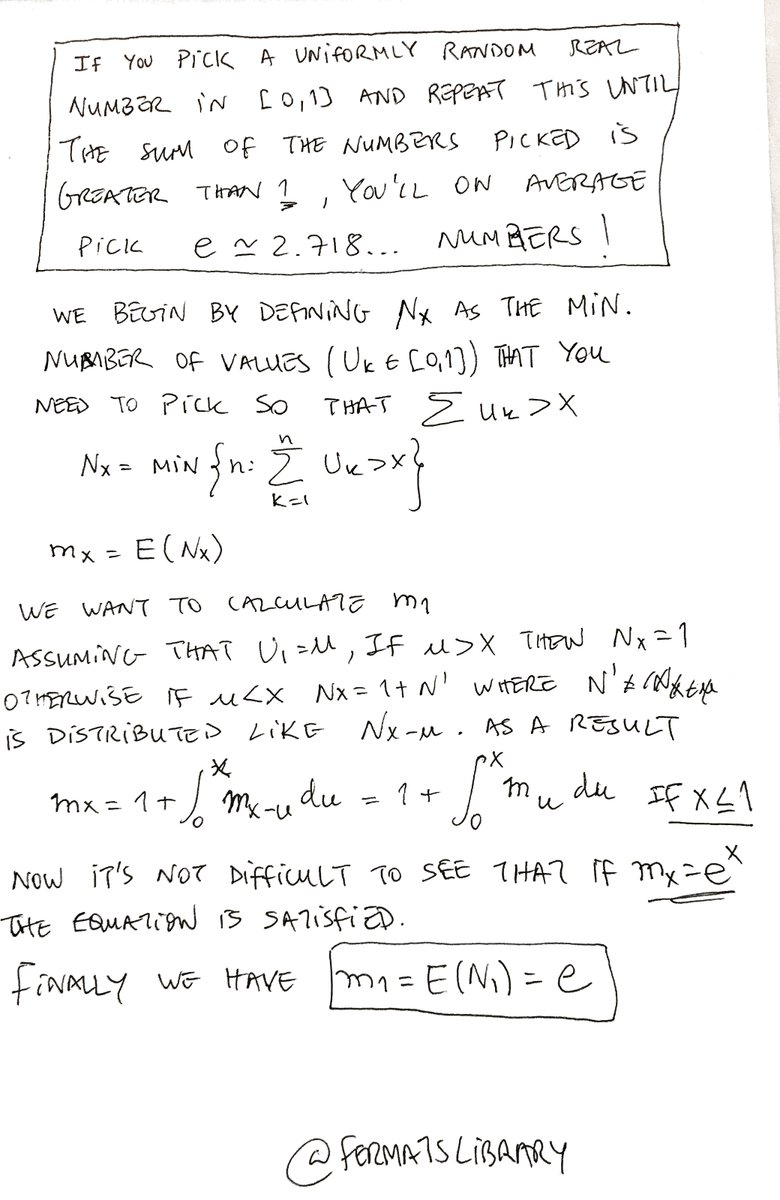 IF YOU PICK A UNIFORMLY RANDOM REAL
NUMBER IN [0,1] AND REPEAT THIS UNTIL
THE SUM OF THE NUMBERS PICKED IS
GREATER THAN 1, YOU'LL ON AVERAGE
PICK e ≃ 2.718... NUMBERS!
WE BEGIN BY DEFINING Nx AS THE MIN.
NUMBER OF VALUES (Uk ∈ [0,1]) THAT YOU
NEED TO PICK SO THAT ∑ uk > x
Nx = MIN {n: ∑_{k=1}^{n} Uk > x}
mx = E(Nx)
WE WANT TO CALCULATE m1
ASSUMING THAT U1 = u, IF u > x THEN Nx = 1
OTHERWISE IF u < x Nx = 1 + N' WHERE N'
IS DISTRIBUTED LIKE Nx-u. AS A RESULT
mx = 1 + ∫_0^x m_{x-u} du = 1 + ∫_0^x m_u du IF x ≤ 1
NOW IT'S NOT DIFFICULT TO SEE THAT IF mx = e^x
THE EQUATION IS SATISFIED.
FINALLY WE HAVE m1 = E(N1) = e
@FERMATSLIBRARY